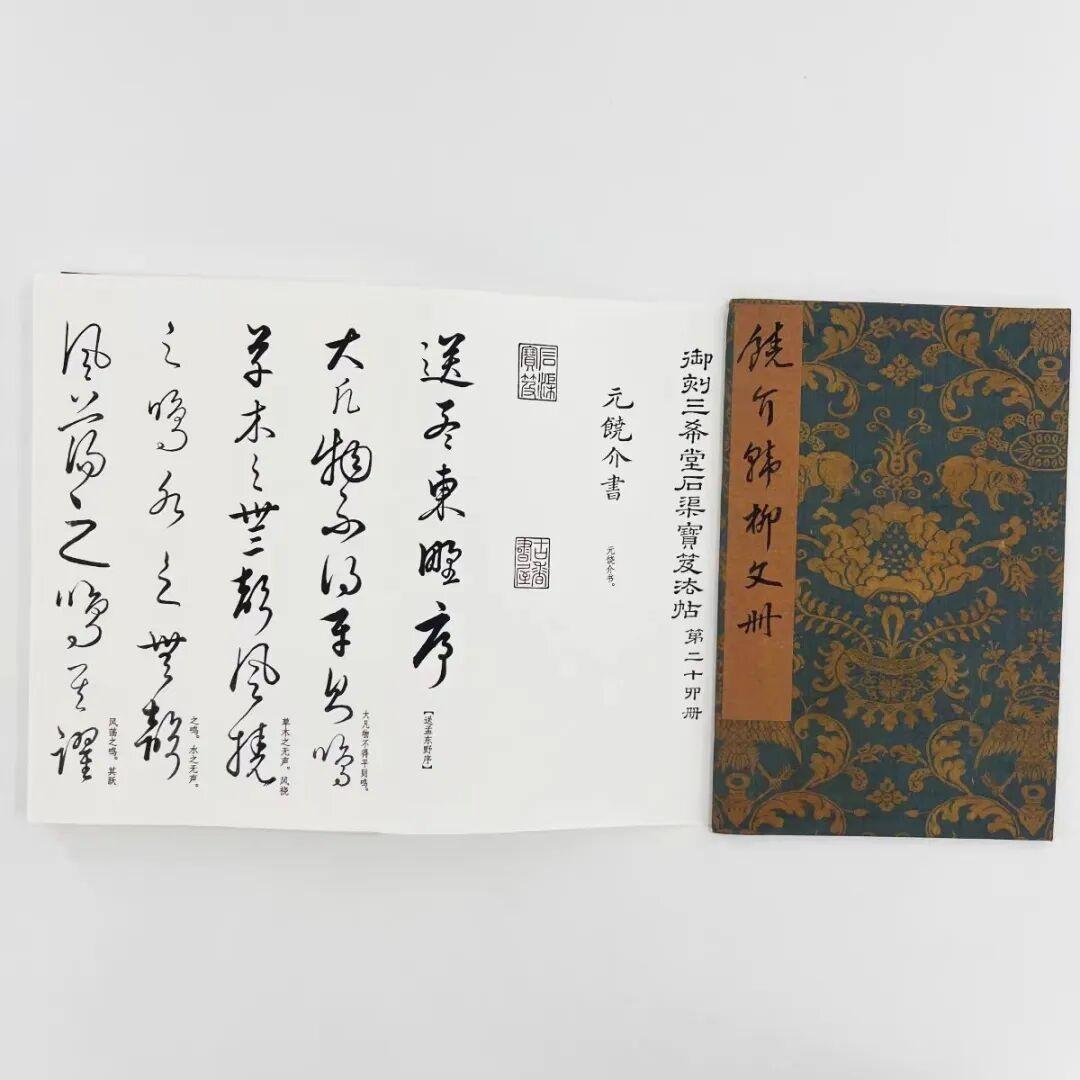 饒介韓柳文册
御刻三希堂石渠寶笈法帖 第二十卯册
元饒介書
元饶介书。
石渠寶笈
古香書屋
送孟東野序
【送孟东野序】
大凡物不得平則鳴
大凡物不得平则鸣。
草木之無聲風撓
草木之无声。风挠
之鳴水之無聲
之鸣。水之无声。
風蕩之鳴其躍
风荡之鸣。其跃